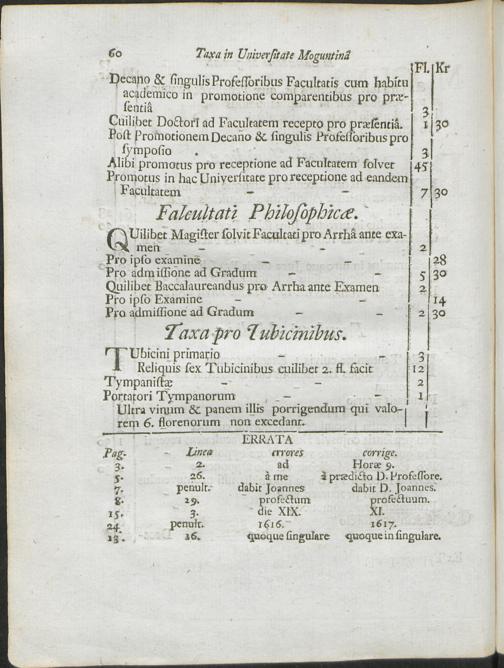 60 Taxa in Universitate Moguntinâ
Fl. Kr
Decano & singulis Professoribus Facultatis cum habitu
academico in promotione comparentibus pro præ-
sentiâ 3
Cuilibet Doctori ad Facultatem recepto pro præsentiâ. 1 30
Post Promotionem Decano & singulis Professoribus pro
symposio . 3
Alibi promotus pro receptione ad Facultatem solvet 45
Promotus in hac Universitate pro receptione ad eandem
Facultatem – – 7 30
Falcultati Philosophicæ.
QUilibet Magister solvit Facultati pro Arrhâ ante exa-
men – – – 2
Pro ipso examine – – – 28
Pro admissione ad Gradum – – 5 30
Quilibet Baccalaureandus pro Arrha ante Examen 2
Pro ipso Examine – – – 14
Pro admissione ad Gradum – – 2 30
Taxa pro Tubicinibus.
TUbicini primario – – 3
Reliquis sex Tubicinibus cuilibet 2. fl. facit 12
Tympanistæ – – – 2
Portatori Tympanorum – – 1
Ultra vinum & panem illis porrigendum qui valo-
rem 6. florenorum non excedant.
ERRATA
Pag. Linea errores corrige.
3. 2. ad Horæ 9.
5. 26. à me à prædicto D. Professore.
7. penult. dabit Joannes dabit D. Joannes.
8. 19. profectum profectuum.
15. 3. die XIX. XI.
24. penult. 1616. 1617.
13. 16. quoque singulare quoque in singulare.